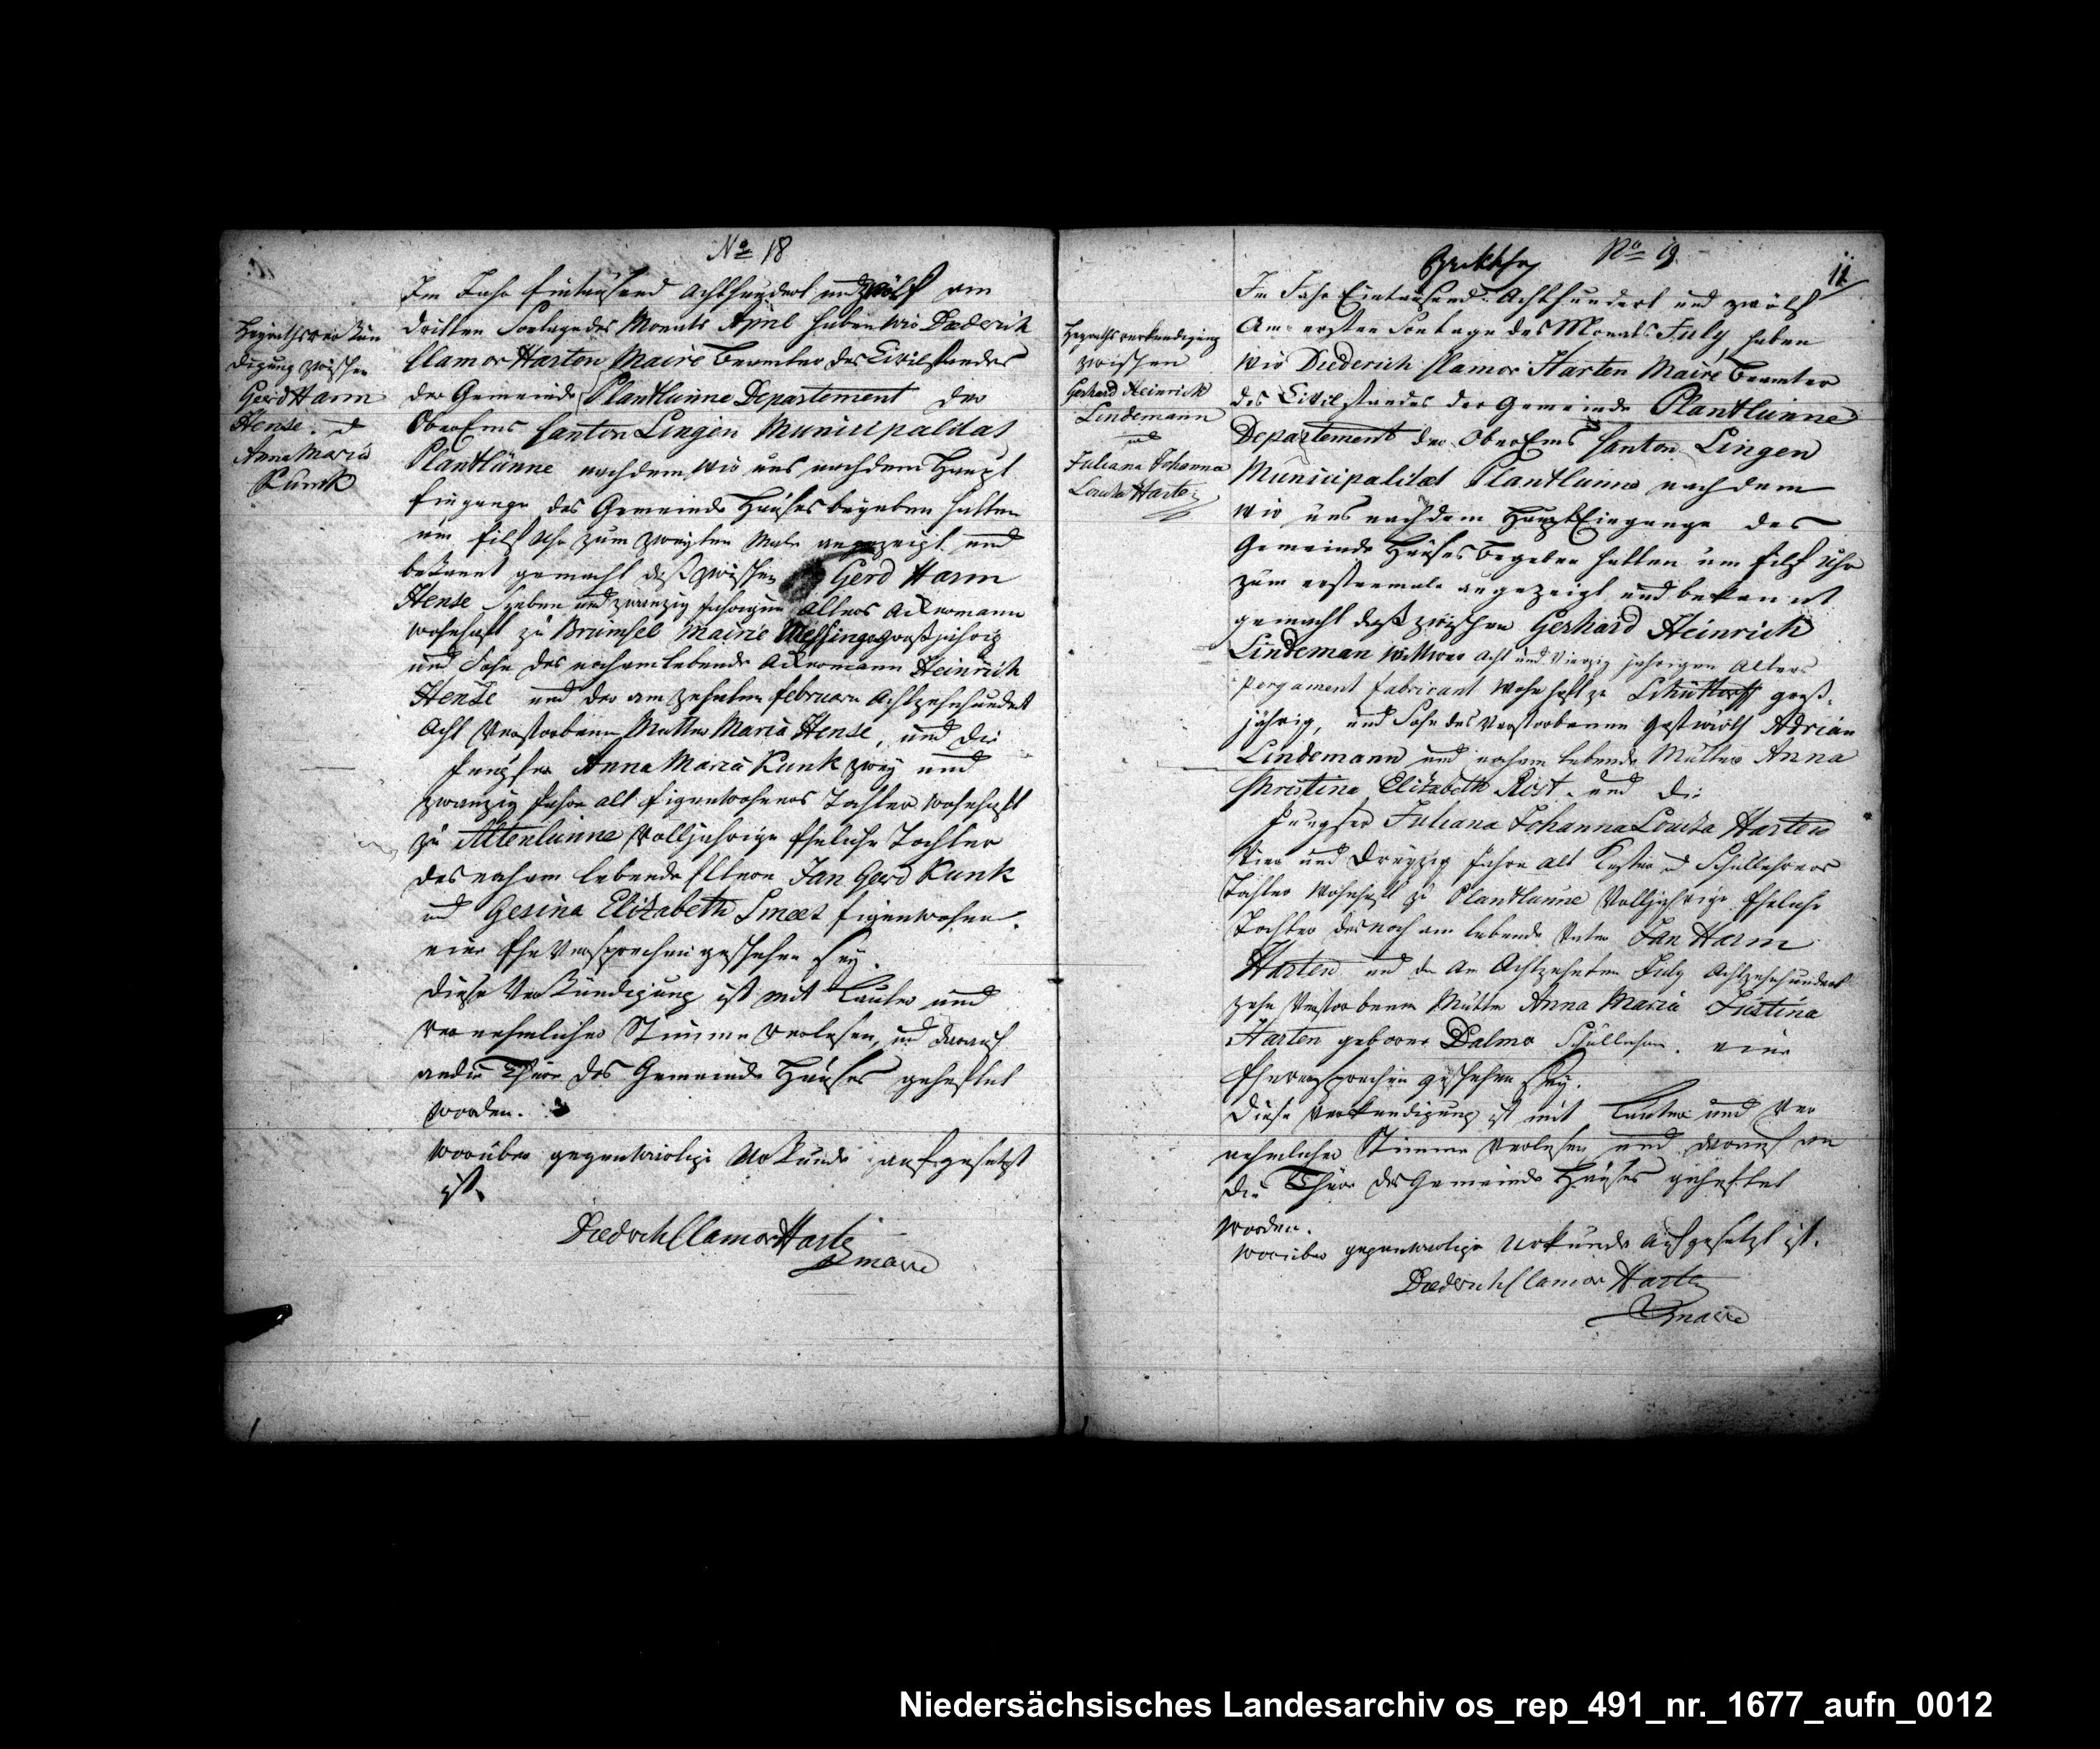 No 18
Heyrathsverkün
digung zwischen
Gerd Harm
Hense. u
Anna Maria
Runk
Im Jahr Eintausend Achthundert und zwölf am
dritten Sontage des Monats April haben wir Diederich
Clamor Harten Maire Beamter des Civilstandes
der Gemeinde Plantlünne Departement der
OberEms Canton Lingen Municipalitat
Plantlünne nachdem wir uns nach dem Haupt
Eingange des Gemeinde Hauses begeben hatten
um Eilf Uhr zum zweyten Male angezeigt und
bekannt gemacht daß zwischen Gerd Harm
Hense Sieben und zwanzig jahrigen Alters Ackermann
wohnhaft zu Brümsel Mairie Messingen großjährig
und Sohn des noch am lebende Ackermann Heinrich
Hense und der am zehnten Februar Achtzehnhundert
Acht Verstorbenen Mutter Maria Hense, und die
Jungfer Anna Maria Runk zwey und
zwanzig Jahre alt Eigenwohners Tochter wohnhaft
zu Altenlünne Volljahrige Eheliche Tochter
des noch am lebende Eltern Jan Gerd Runk
und Gesina Elizabeth Smeet Eigenwohner.
eine Ehe Versprechen geschehen sey.
Diese Verkündigung ist mit Lauter und
vernehmlicher Stimme verlesen, und darauf
an die Thüre des Gemeinde Hauses geheftet
worden.
Worüber gegenwärtige Urkunde aufgesetzt
ist.
Diederich Clamor Harten
Maire
No 19
11
Heyrathsverkendigung
zwischen
Gerhard Heinrich
Lindemann
und
Juliana Johanna
Louisa Harten
Im Jahr Eintausend Achthundert und zwölf
Am ersten Sontage des Monats July haben
Wir Diederich Clamor Harten Maire Beamter
des Civilstandes der Gemeinde Plantlünne
Departement der OberEms Canton Lingen
Municipalitat Plantlünne nachdem
wir uns nach dem HauptEingange des
Gemeinde Hauses begeben hatten um Eilf Uhr
zum erstenmale angezeigt und bekannt
gemacht daß zwischen Gerhard Heinrich
Lindeman Wittwer acht und Vierzig jahrigen Alters
Pergament Fabricant Wohnhaft zu Schüttorff groß-
jährig, und Sohn des Verstorbenen Gastwirth Adrian
Lindemann und noch am lebende Mutter Anna
Christina Elizabeth Rost. und die
Jungfer Juliana Johanna Louisa Harten
Vier und Dreyzig Jahre alt Küster u Schullehrers
Tochter Wohnhaft zu Plantlünne Volljahrige Eheliche
Tochter des noch am lebende Vater Jan Harm
Harten und der Am Achtzehnten July Achtzehnhundert
zehn Verstorbenen Mutter Anna Maria Justina
Harten geborne Dalmo Schullehrer. eine
Eheversprechen geschehen sey.
Diese Verkendigung ist mit Lauter und Ver
nehmlicher Stimme Verlesen und darauf an
die Thüre des Gemeinde Hauses geheftet
worden.
Worüber gegenwärtige Urkunde Aufgesetzt ist.
Diederich Clamor Harten
Maire
Niedersächsisches Landesarchiv os_rep_491_nr._1677_aufn_0012